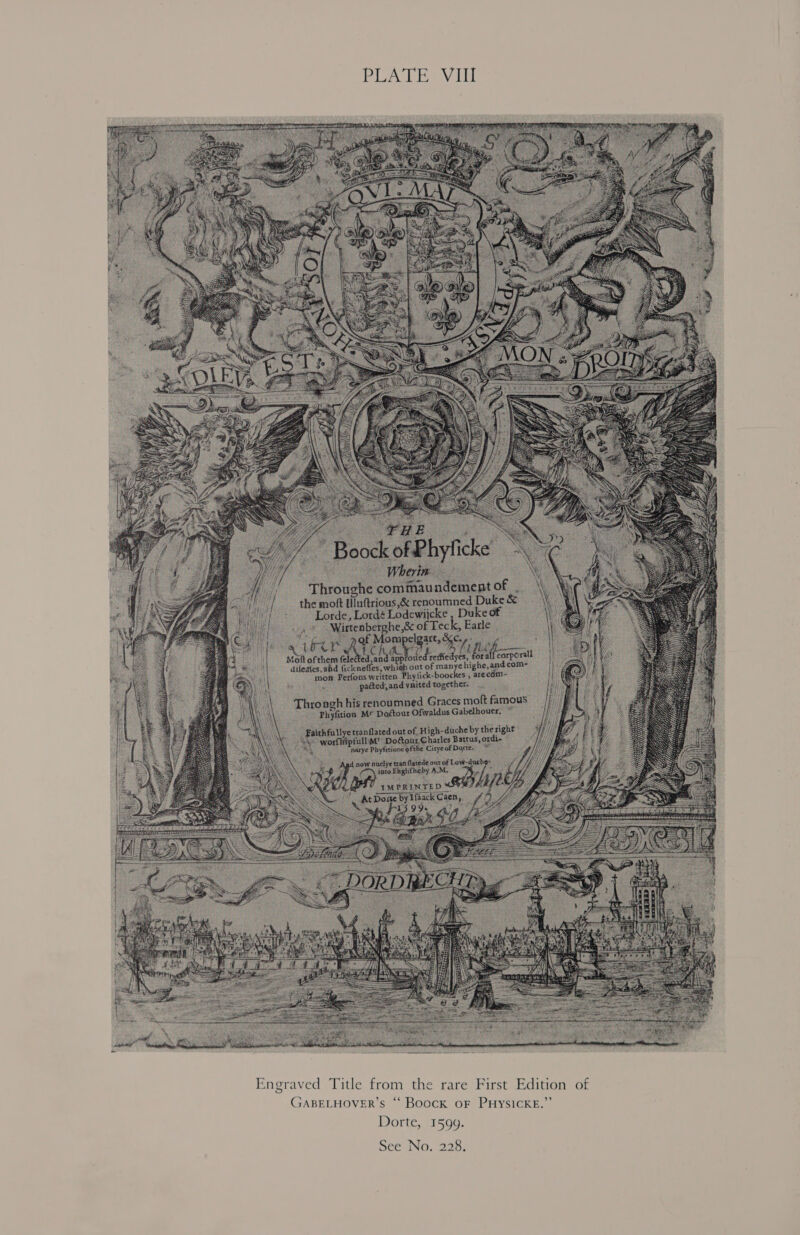 PLATE VIII
H S Q
HONI SOIT QVI: MAL Y PENSE
DIEV EST: MON & DROIT
THE
Boock of Phyſicke
Wherin
Throughe commaundement of
the moſt Illuſtrious, & renoumned Duke &
Lorde, Lorde Lodewijcke, Duke of
Wirtenberghe, & of Teck, Earle
of Mompelgart, &c.
Moſt of them ſelected, and approued remedyes, for all corporall
diſeaſes, and ſickneſſes, which out of manye highe, and com-
mon Perſons written Phyſick-boockes, are com-
pacted, and vnited together.
Through his renoumned Graces moſt famous
Phyſition Mr Doctour Oſwaldus Gabelhouer.
Faithfullye tranſlated out of High-duche by the right
worſhipfull Mr Doctour Charles Battus, ordi-
narye Phyſitione of the Citye of Dorte.
And now nuelye tranſlatede out of Low-duche
into Engliſhe by A.M.
IMPRINTED
At Dorte by Iſaack Caen,
1599.
DORDRECHT
Engraved Title from the rare First Edition of
GABELHOVER'S “ BOOCK OF PHYSICKE.”
Dorte, 1599.
See No. 228.